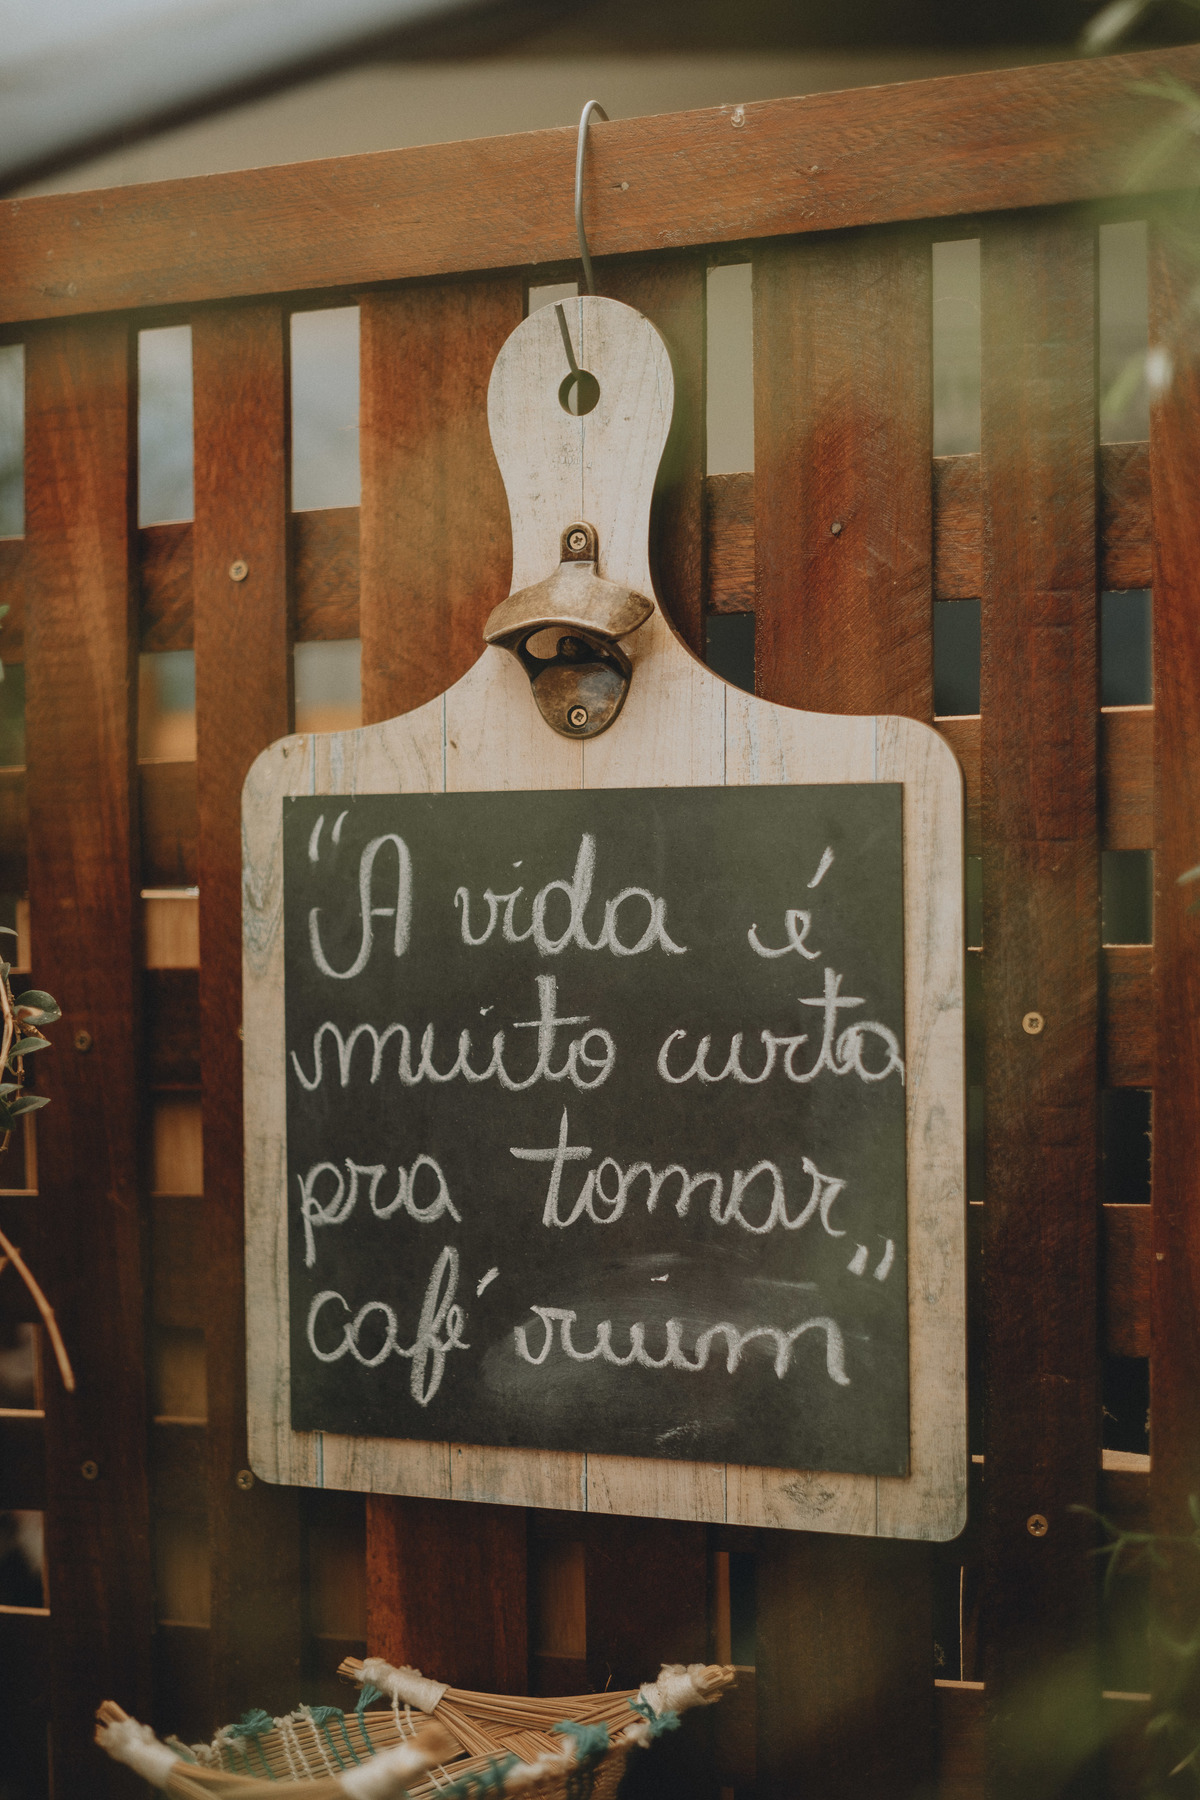 “A vida é
muito curta
pra tomar
café ruim”